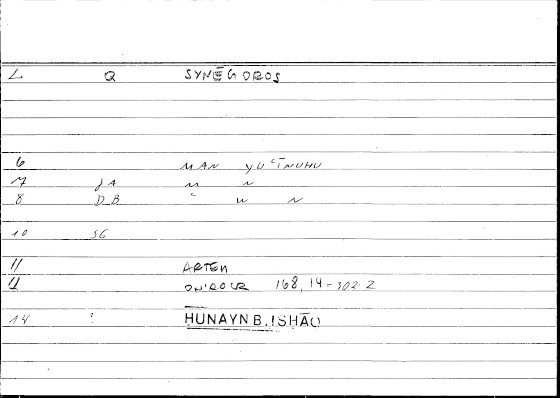 L Q SYNĒGOROS
6 MAN YUʿĪNUHU
7 JA M N
8 DB ʿ W N
10 SG
11 ARTEM
12 ONIROCR 168,14-302.2
14 ? ḤUNAYN B. ISḤĀQ